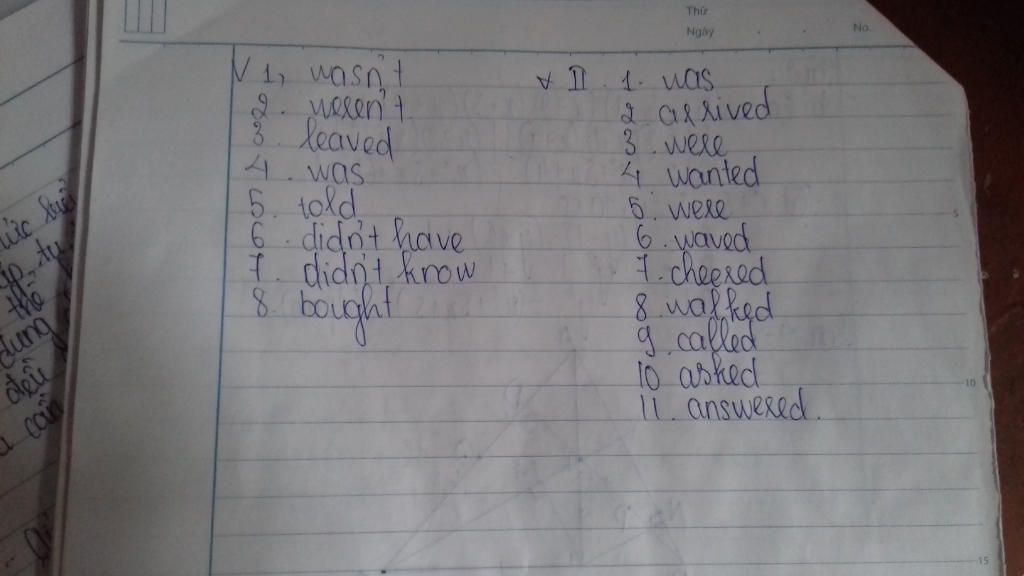 Thứ
Ngày . . No.
V 1, wasn't
2. weren't
3. leaved
4. was
5. told
6. didn't have
7. didn't know
8. bought
II. 1. was
2. arrived
3. were
4. wanted
5. were
6. waved
7. cheered
8. walked
9. called
10 asked
11. answered.
5
10
15
dung
cần